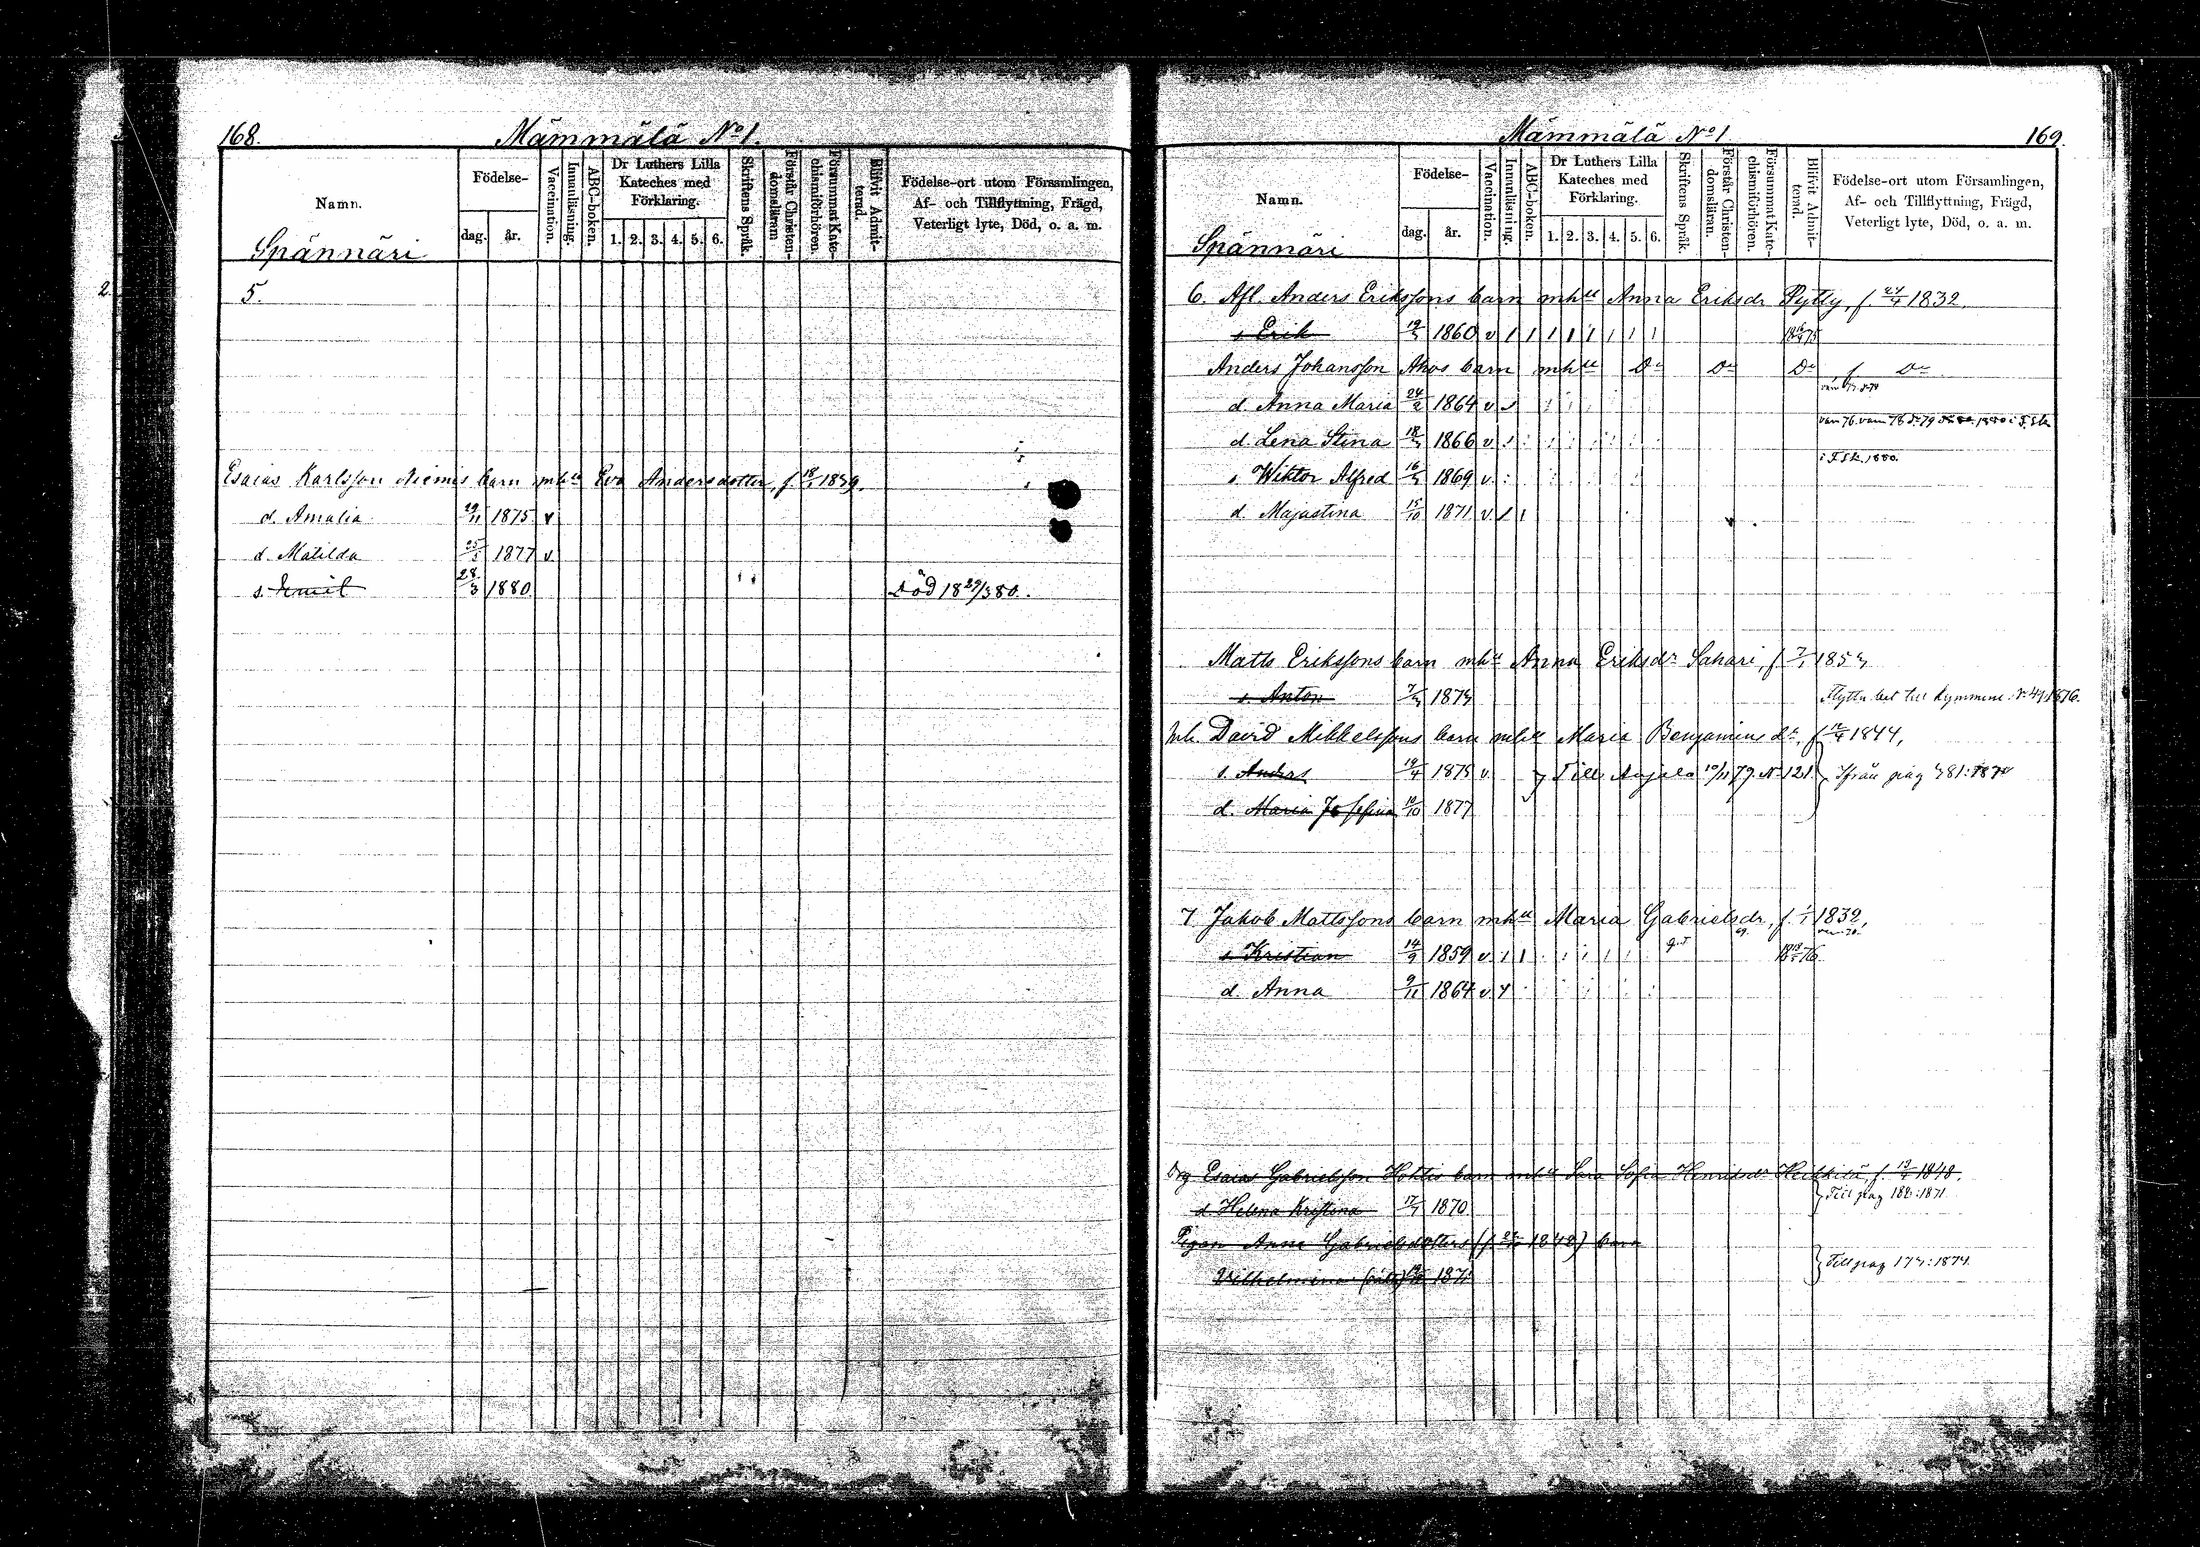 168. Mämmälä No 1.
Namn.
Födelse-
dag. år.
Vaccination.
Innanläsning.
ABC-boken.
Dr Luthers Lilla Kateches med Förklaring.
1. 2. 3. 4. 5. 6.
Skriftens Språk.
Förstår Christendomsläran
Försummat Katechismiförhören.
Blifvit Admitterad.
Födelse-ort utom Församlingen,
Af- och Tillflyttning, Frägd,
Veterligt lyte, Död, o. a. m.
Spännäri
2.
5.
Esaias Karlsson Niemis barn mhu Eva Andersdotter, f. 1839.
d. Amalia 29/11 1875 v
d. Matilda 1877 v.
s. Emil 28/3 1880. Död 18 29/3 80.
Mämmälä No 1 169.
Namn.
Födelse-
dag. år.
Vaccination.
Innanläsning.
ABC-boken.
Dr Luthers Lilla
Kateches med
Förklaring.
1. 2. 3. 4. 5. 6.
Skriftens Språk.
Förstår Christendomsläran.
Försummat Katechismiförhören.
Blifvit Admitterad.
Födelse-ort utom Församlingen,
Af- och Tillflyttning, Frägd,
Veterligt lyte, Död, o. a. m.
Spännäri
6. Afl. Anders Erikssons barn mhu Anna Eriksdr Pytty, f 1832.
s Erik 1860 v 1 1 1 1 1 1 1 1
Anders Johansson Ahos barn mhu Do Do Do f Do
d. Anna Maria 24/2 1864 v
d. Lena Stina 1866 v
s. Wiktor Alfred 1869 v
i F.Sk. 1880.
d. Majastina 15/10 1871 v 1 1
Matts Erikssons barn mhu Anna Eriksdr Sahari, f
s. Anton
Mh. David Mikkelssons barn mhu Maria Benjamins dr, f 1844,
s. Anders 19/4 1875 v. Till Anjala 10/11 79. No 121 Ifrån pag
d. Maria Josefina 10/10 1877
7 Jakob Mattssons barn mhu Maria Gabrielsdr, f. 1/1 1832,
s. Kristian 14/9 1859 v 1 1
d. Anna 9/11 1864 v
Drg Esaias Gabrielsson Hohtis barn mhu Sara Sofia Henriksdr Heikkilä, f. 1848.
d. Helena Kristina 1870. Till pag 182:1871
Pigan Anna Gabrielsdotters (f. 1848) barn
Vilhelmina Till pag